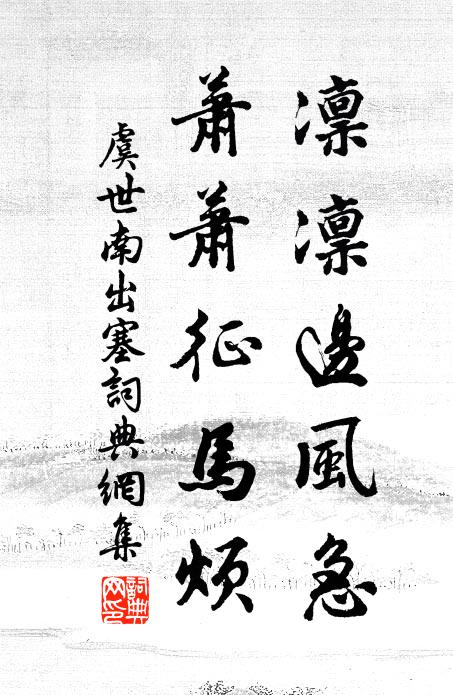 凜凜邊風急
蕭蕭征馬煩
虞世南出塞詞典網集
詞典網印